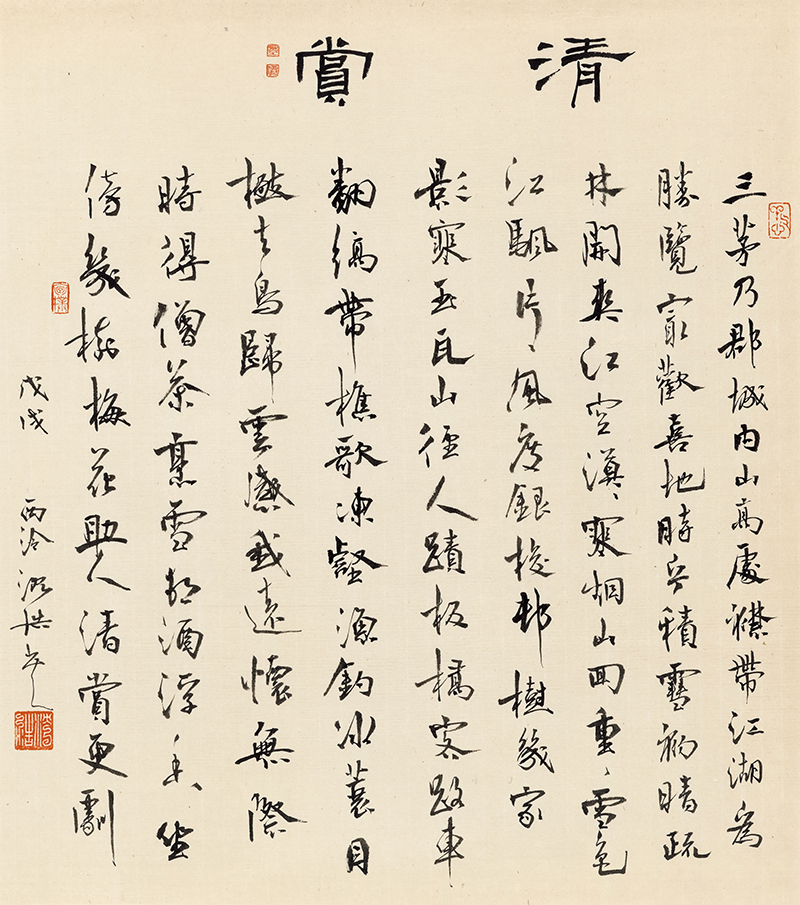 清賞
三茅乃郡城內山高處襟帶江湖為
勝覽㝡歡喜地時乎積雪初晴疏
林開爽江空漠々寒烟山回重々雪色
江颿片々風度銀梭邨樹幾家
影寒玉瓦山徑人蹟板橋客路車
翻縞帶樵歌凍壑漁釣冰蓑目
極去鳥歸雲感我遠懷無際
時得僧茶烹雪邨酒浮香坐
傍幾樹梅花助人清賞更劇
戊戌 西泠